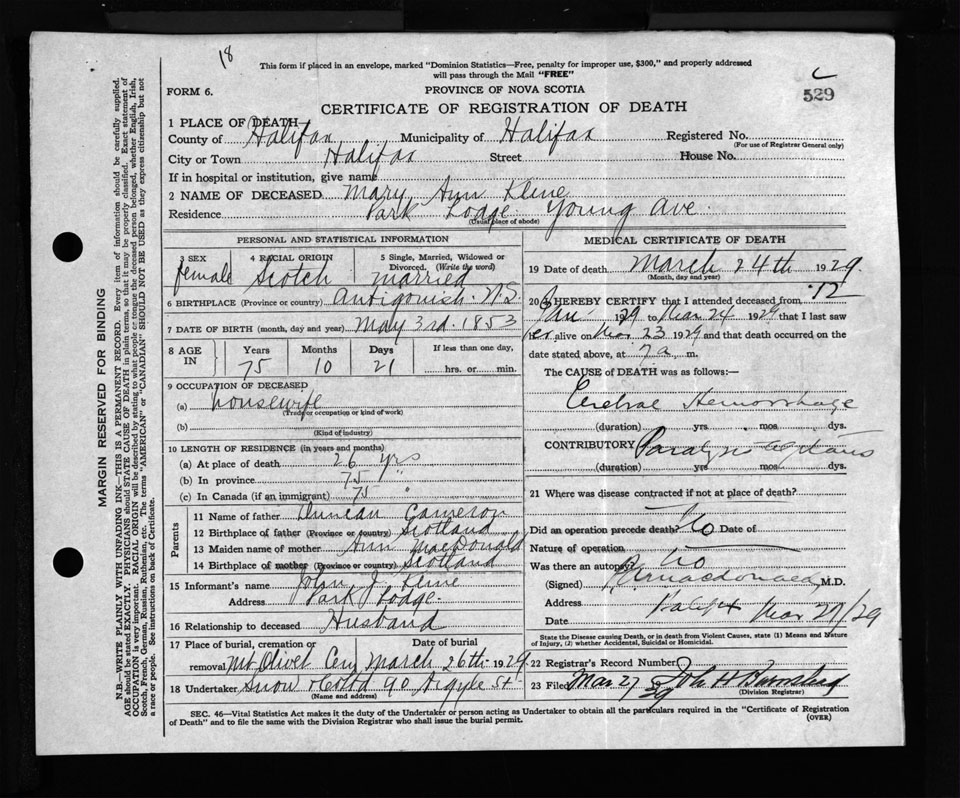 18
This form if placed in an envelope, marked "Dominion Statistics—Free, penalty for improper use, $300," and properly addressed
will pass through the Mail "FREE"
FORM 6.
PROVINCE OF NOVA SCOTIA
529
CERTIFICATE OF REGISTRATION OF DEATH
1 PLACE OF DEATH
County of Halifax Municipality of Halifax Registered No.
(For use of Registrar General only)
City or Town Halifax Street House No.
If in hospital or institution, give name
2 NAME OF DECEASED Mary Ann Kline
Residence Park Lodge Young Ave.
(Usual place of abode)
PERSONAL AND STATISTICAL INFORMATION
3 SEX 4 RACIAL ORIGIN 5 Single, Married, Widowed or
Divorced. (Write the word)
female Scotch married
6 BIRTHPLACE (Province or country) Antigonish. N.S.
7 DATE OF BIRTH (month, day and year) May 3rd. 1853
8 AGE IN Years Months Days If less than one day,
75 10 21 hrs. or min.
9 OCCUPATION OF DECEASED
(a) housewife
(Trade or occupation or kind of work)
(b)
(Kind of industry)
10 LENGTH OF RESIDENCE (in years and months)
(a) At place of death 26 yrs
(b) In province 75 "
(c) In Canada (if an immigrant) 75 "
Parents
11 Name of father Duncan Cameron
12 Birthplace of father (Province or country) Scotland
13 Maiden name of mother Ann MacDonald
14 Birthplace of mother (Province or country) Scotland
15 Informant's name John J. Kline
Address Park Lodge.
16 Relationship to deceased Husband
17 Place of burial, cremation or removal Date of burial
Mt. Olivet Cem March 26th 1929.
18 Undertaker Snow & Co Ltd 90 Argyle St
(Name and address)
MEDICAL CERTIFICATE OF DEATH
19 Date of death March 24th 1929.
(Month, day and year)
20 I HEREBY CERTIFY that I attended deceased from 12
Jan 1929 to Mar 24 1929 that I last saw
her alive on Mar 23 1929 and that death occurred on
date stated above, at 7 a. m.
The CAUSE of DEATH was as follows:—
Cerebral Hemorrhage
(duration) yrs mos. dys.
CONTRIBUTORY Paralysis agitans
(duration) yrs. mos. dys.
21 Where was disease contracted if not at place of death?
Did an operation precede death? No Date of
Nature of operation
Was there an autopsy? No
(Signed) macdonald, M.D.
Address Halifax
Date Mar 27/29
State the Disease causing Death, or in death from Violent Causes, state (1) Means and Nature
of Injury, (2) whether Accidental, Suicidal or Homicidal.
22 Registrar's Record Number
23 Filed Mar 27 29 John H Barnstead
(Division Registrar)
SEC. 46—Vital Statistics Act makes it the duty of the Undertaker or person acting as Undertaker to obtain all the particulars required in the "Certificate of Registration
of Death" and to file the same with the Division Registrar who shall issue the burial permit.
(OVER)
MARGIN RESERVED FOR BINDING
N.B.—WRITE PLAINLY WITH UNFADING INK—THIS IS A PERMANENT RECORD. Every item of information should be carefully supplied.
AGE should be stated EXACTLY. PHYSICIANS should STATE CAUSE OF DEATH in plain terms, so that it may be properly classified. Exact statement of
OCCUPATION is very important. RACIAL ORIGIN will be described by stating to what people or tongue the deceased person belonged, whether English, Irish,
Scotch, French, German, Russian, Ruthenian, etc. The terms "AMERICAN" or "CANADIAN" SHOULD NOT BE USED as they express citizenship but not
a race or people. See instructions on back of Certificate.